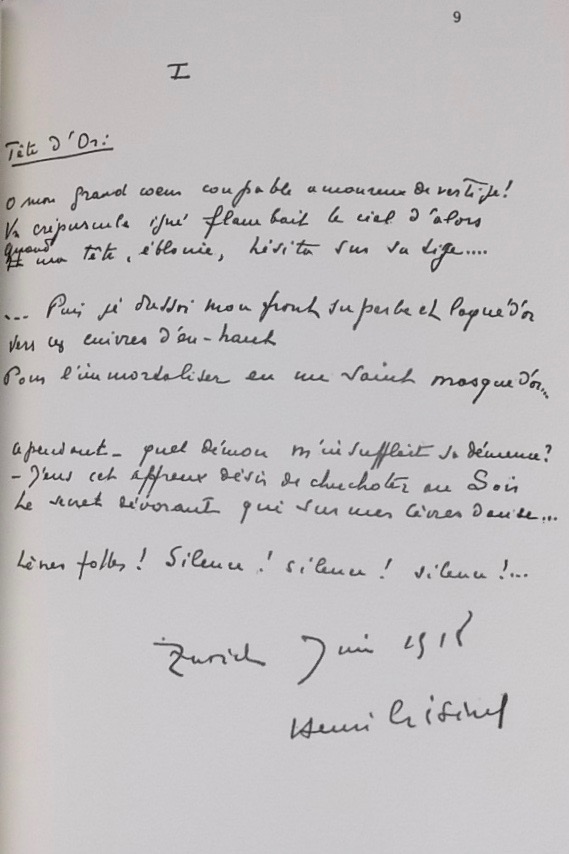 9
I
Tête d'Or:
O mon grand coeur coupable amoureux de vertige!
Un crépuscule igné flambait le ciel d'alors
Quand ma tête, éblouie, hésita sur sa tige....
... Puis je dressai mon front superbe et laqué d'or
vers ces cuivres d'en-haut
Pour l'immortaliser en un Saint masque d'or...
Cependant - quel démon m'insufflait sa démence?
- J'eus cet affreux désir de chuchoter au Soir
Le secret dévorant qui sur mes lèvres danse...
Lèvres folles! Silence! silence! silence!...
Zurich Juin 1918
Henri